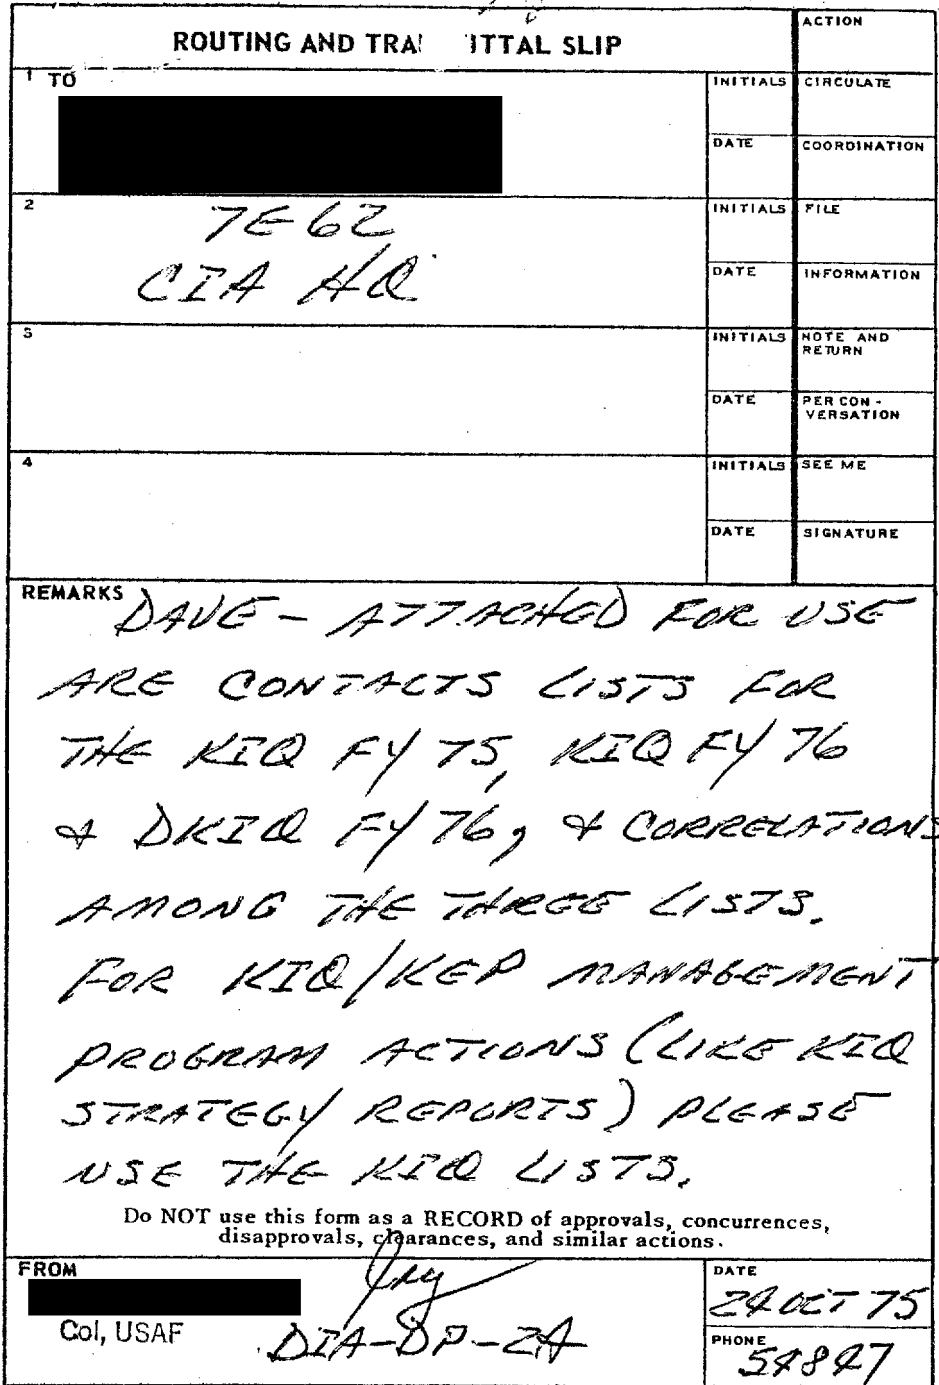 ROUTING AND TRA ITTAL SLIP
ACTION
1 TO
INITIALS
CIRCULATE
DATE
COORDINATION
2
7E62
CIA HQ
INITIALS
FILE
DATE
INFORMATION
3
INITIALS
NOTE AND
RETURN
DATE
PER CON-
VERSATION
4
INITIALS
SEE ME
DATE
SIGNATURE
REMARKS
DAVE - ATTACHED FOR USE
ARE CONTACTS LISTS FOR
THE KIQ FY 75, KIQ FY 76
& DKIQ FY 76, & CORRELATIONS
AMONG THE THREE LISTS.
FOR KIQ/KEP MANAGEMENT
PROGRAM ACTIONS (LIKE KIQ
STRATEGY REPORTS) PLEASE
USE THE KIQ LISTS.
Do NOT use this form as a RECORD of approvals, concurrences,
disapprovals, clearances, and similar actions.
FROM
Col, USAF
DIA-DP-2A
DATE
24 OCT 75
PHONE
54847